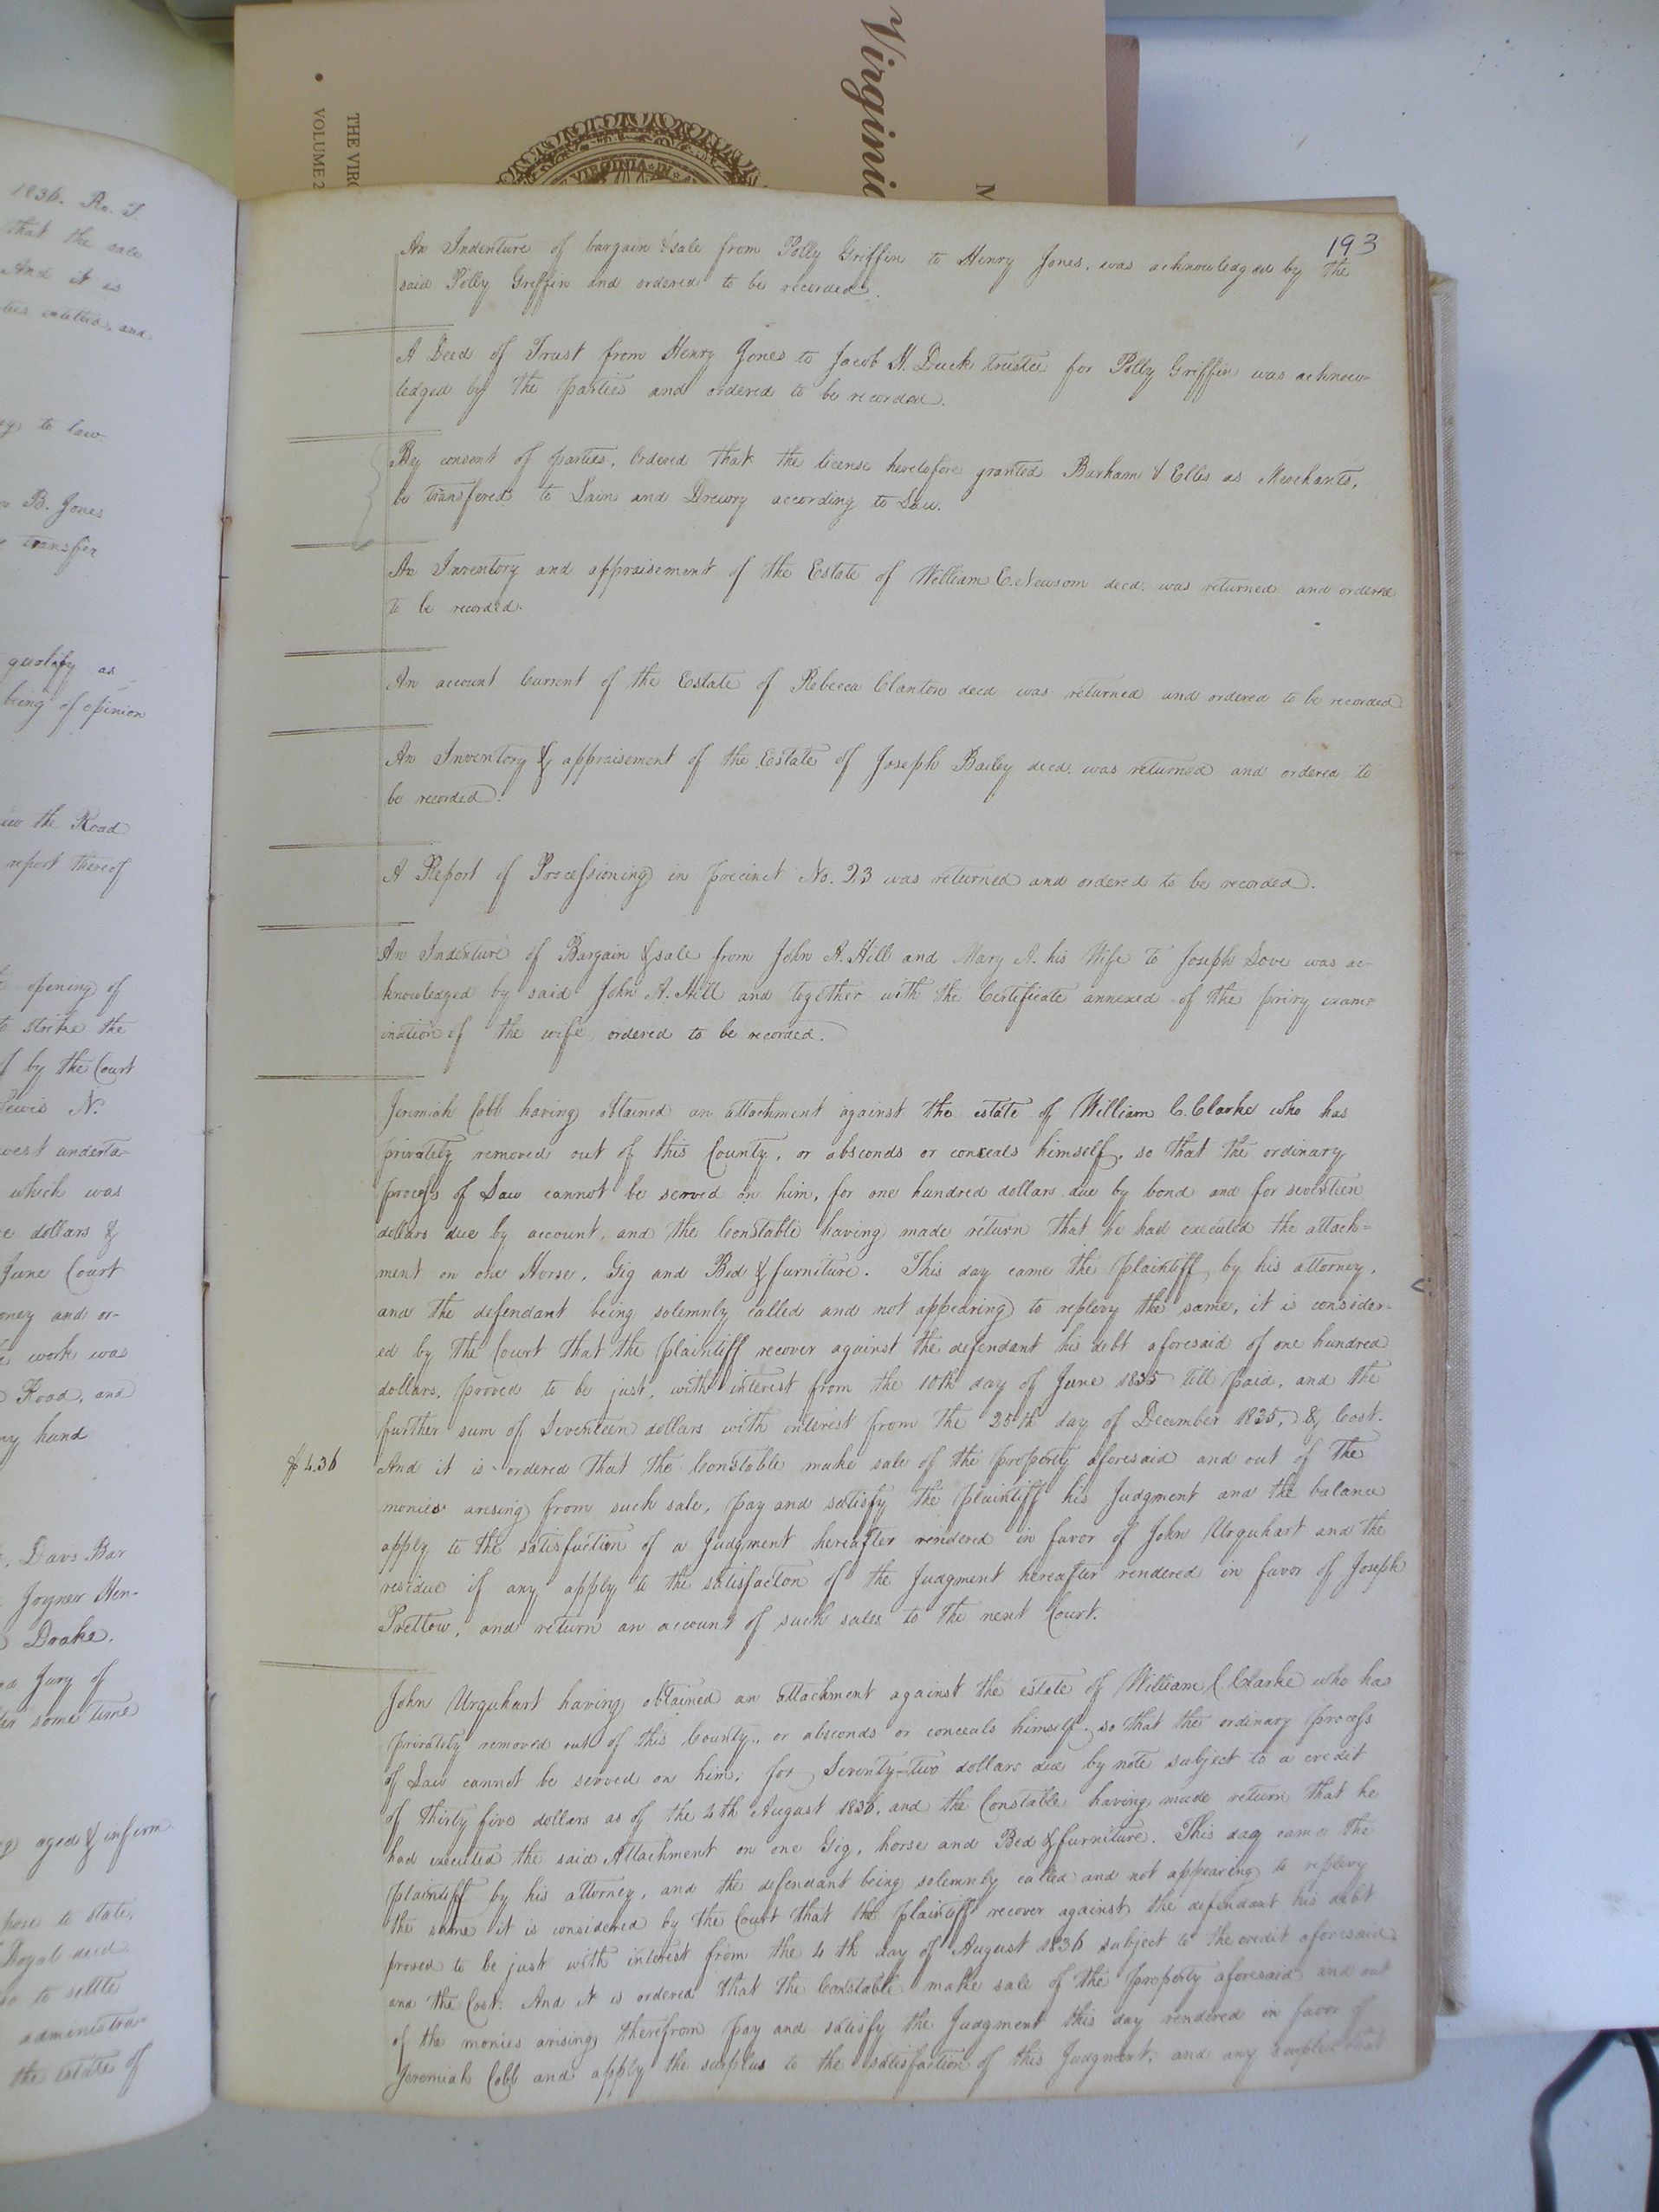 Virginia
THE VIRG
VOLUME 2
M
VIRGINIA IN
193
An Indenture of bargain & sale from Polly Griffin to Henry Jones, was acknowledged by the
said Polly Griffin and ordered to be recorded.
A Deed of Trust from Henry Jones to Jacob H. Duck trustee for Polly Griffin was acknow-
ledged by the parties and ordered to be recorded.
By consent of parties, Ordered that the license heretofore granted Barham & Ellis as Merchants,
be transfered to Lain and Drewry according to Law.
An Inventory and appraisement of the Estate of William C. Newsom decd. was returned and ordered
to be recorded.
An account Current of the Estate of Rebecca Clanton decd was returned and ordered to be recorded
An Inventory & appraisement of the Estate of Joseph Bailey decd. was returned and ordered to
be recorded.
A Report of Processioning in precinct No. 23 was returned and ordered to be recorded.
An Indenture of Bargain & sale from John A. Hill and Mary A. his Wife to Joseph Love was ac-
knowledged by said John A. Hill and together with the Certificate annexed of the privy exam=
ination of the wife, ordered to be recorded.
Jeremiah Cobb having obtained an attachment against the estate of William C. Clarke who has
privately removed out of this County, or absconds or conceals himself, so that the ordinary
process of Law cannot be served on him, for one hundred dollars due by bond and for seventeen
dollars due by account, and the Constable having made return that he had executed the attach=
ment on one Horse, Gig and Bed & furniture. This day came the plaintiff by his attorney,
and the defendant being solemnly called and not appearing to replevy the same, it is consider-
ed by the Court that the plaintiff recover against the defendant his debt aforesaid of one hundred
dollars, proved to be just, with interest from the 10th day of June 1835 till paid, and the
further sum of Seventeen dollars with interest from the 25th day of December 1835, & Cost.
$4.36 And it is ordered that the Constable make sale of the property aforesaid and out of the
monies arising from such sale, pay and satisfy the plaintiff his Judgment and the balance
apply to the satisfaction of a Judgment hereafter rendered in favor of John Urquhart and the
residue if any apply to the satisfacton of the Judgment hereafter rendered in favor of Joseph
Prettow, and return an account of such sales to the next Court.
John Urquhart having obtained an attachment against the estate of William C. Clarke who has
privately removed out of this County, or absconds or conceals himself, so that the ordinary process
of Law cannot be served on him, for Seventy-two dollars due by note subject to a credit
of thirty five dollars as of the 4th August 1836, and the Constable having made return that he
had executed the said Attachment on one Gig, horse and Bed & furniture. This day came the
plaintiff by his attorney, and the defendant being solemnly called and not appearing to replevy
the same it is considered by the Court that the plaintiff recover against the defendant his debt
proved to be just with interest from the 4th day of August 1836 subject to the credit aforesaid
and the Cost. And it is ordered that the Constable make sale of the property aforesaid and out
of the monies arising therefrom pay and satisfy the Judgment this day rendered in favor of
Jeremiah Cobb and apply the surplus to the satisfaction of this Judgment; and any surplus that
1836. Ro. T.
that the sale
And it is
and
to law.
B. Jones
transfer
qualify as
being of opinion
the Road
report thereof
opening of
strike the
by the Court
Lewis N.
underta-
which was
dollars &
June Court
and or-
work was
Road, and
hand
Davs Bar
Joyner Hen-
Drake.
Jury of
some time
aged & infirm
to state,
decd.
to settle
administra-
the estate of